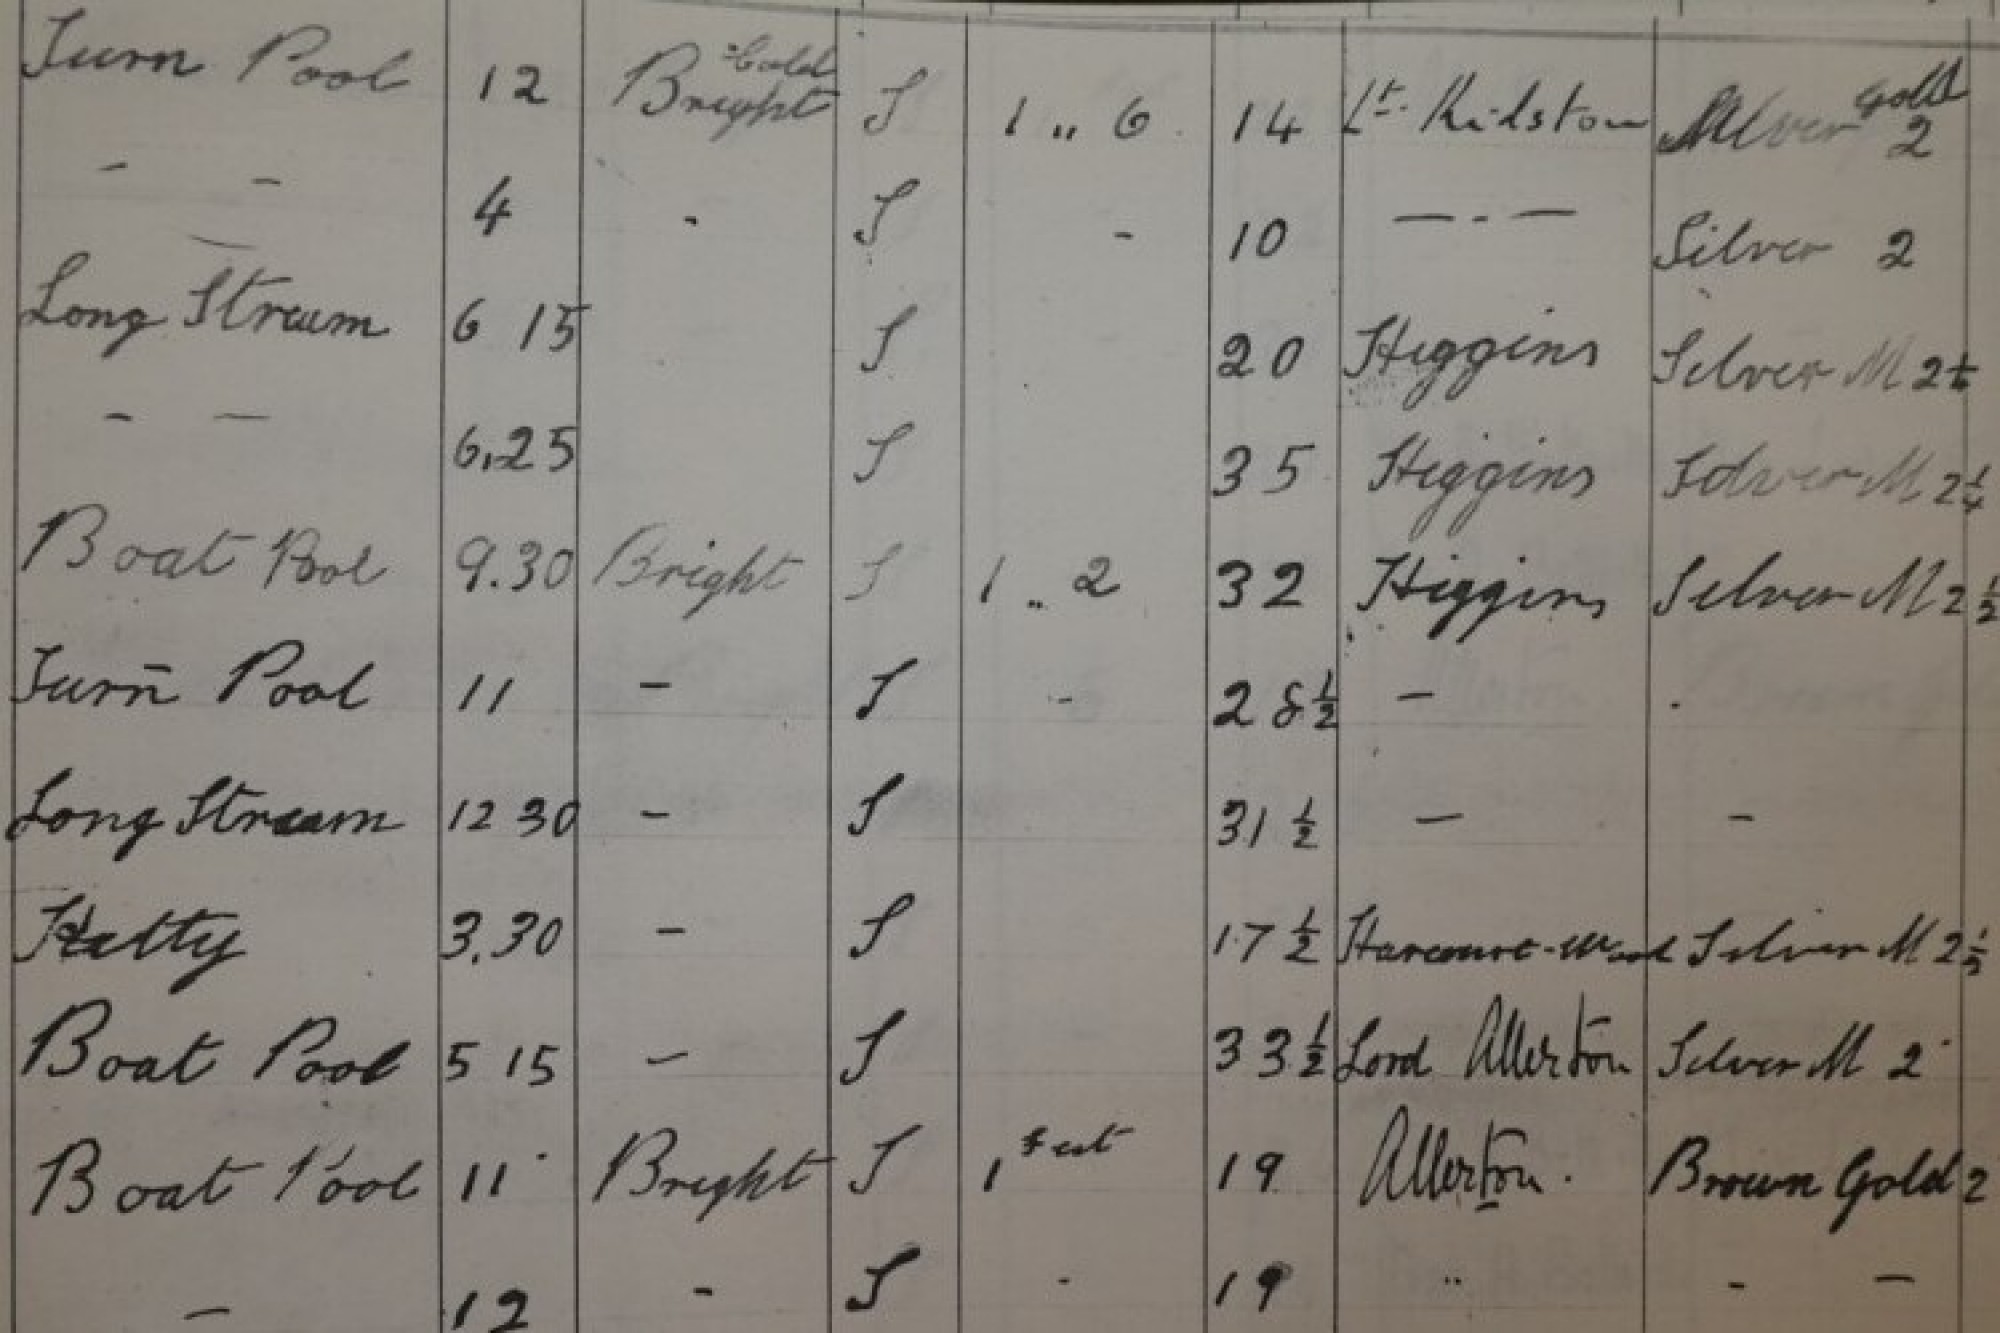 Turn Pool 12 Bright & Cold S 1 ,, 6 14 Lt. Kidston Silver Gold 2
- - 4 - S - 10 — - — Silver 2
Long Stream 6 15 S 20 Higgins Silver M 2¼
- - 6.25 S 35 Higgins Silver M 2¼
Boat Pool 9.30 Bright S 1 ,, 2 32 Higgins Silver M 2½
Turn Pool 11 - S - 28½ - -
Long Stream 12 30 - S 31½ - -
Hetty 3.30 - S 17½ Harcourt-Wood Silver M 2½
Boat Pool 5 15 - S 33½ Lord Allerton Silver M 2
Boat Pool 11 Bright S 1 feet 19 Allerton. Brown Gold 2
- 12 - S - 19 ,, - -